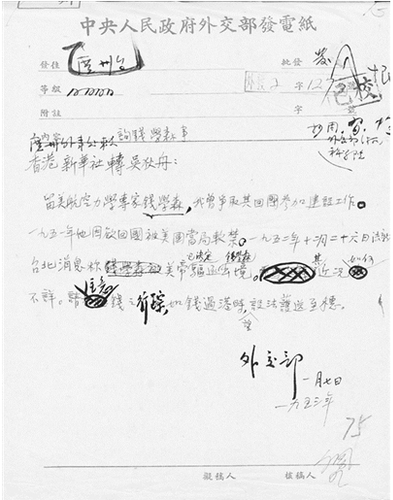 中央人民政府外交部發電紙
發往 廣州台
批發
等級
字 127
附註
詢錢學森事
香港新華社轉吳荻舟：
留美航空力學專家錢學森，我曾爭取其回國參加建設工作。
一九五一年他因欲回國被美國當局軟禁。一九五二年十二月二十六日法新社
台北消息称 美帝 已決定 錢學森 驅逐出境。 其近況 如何
不詳。請 注意 錢之行踪，如錢過港時，望設法護送至穗。
外交部
一月七日
一九五三年
75
已校
擬稿人 核稿人